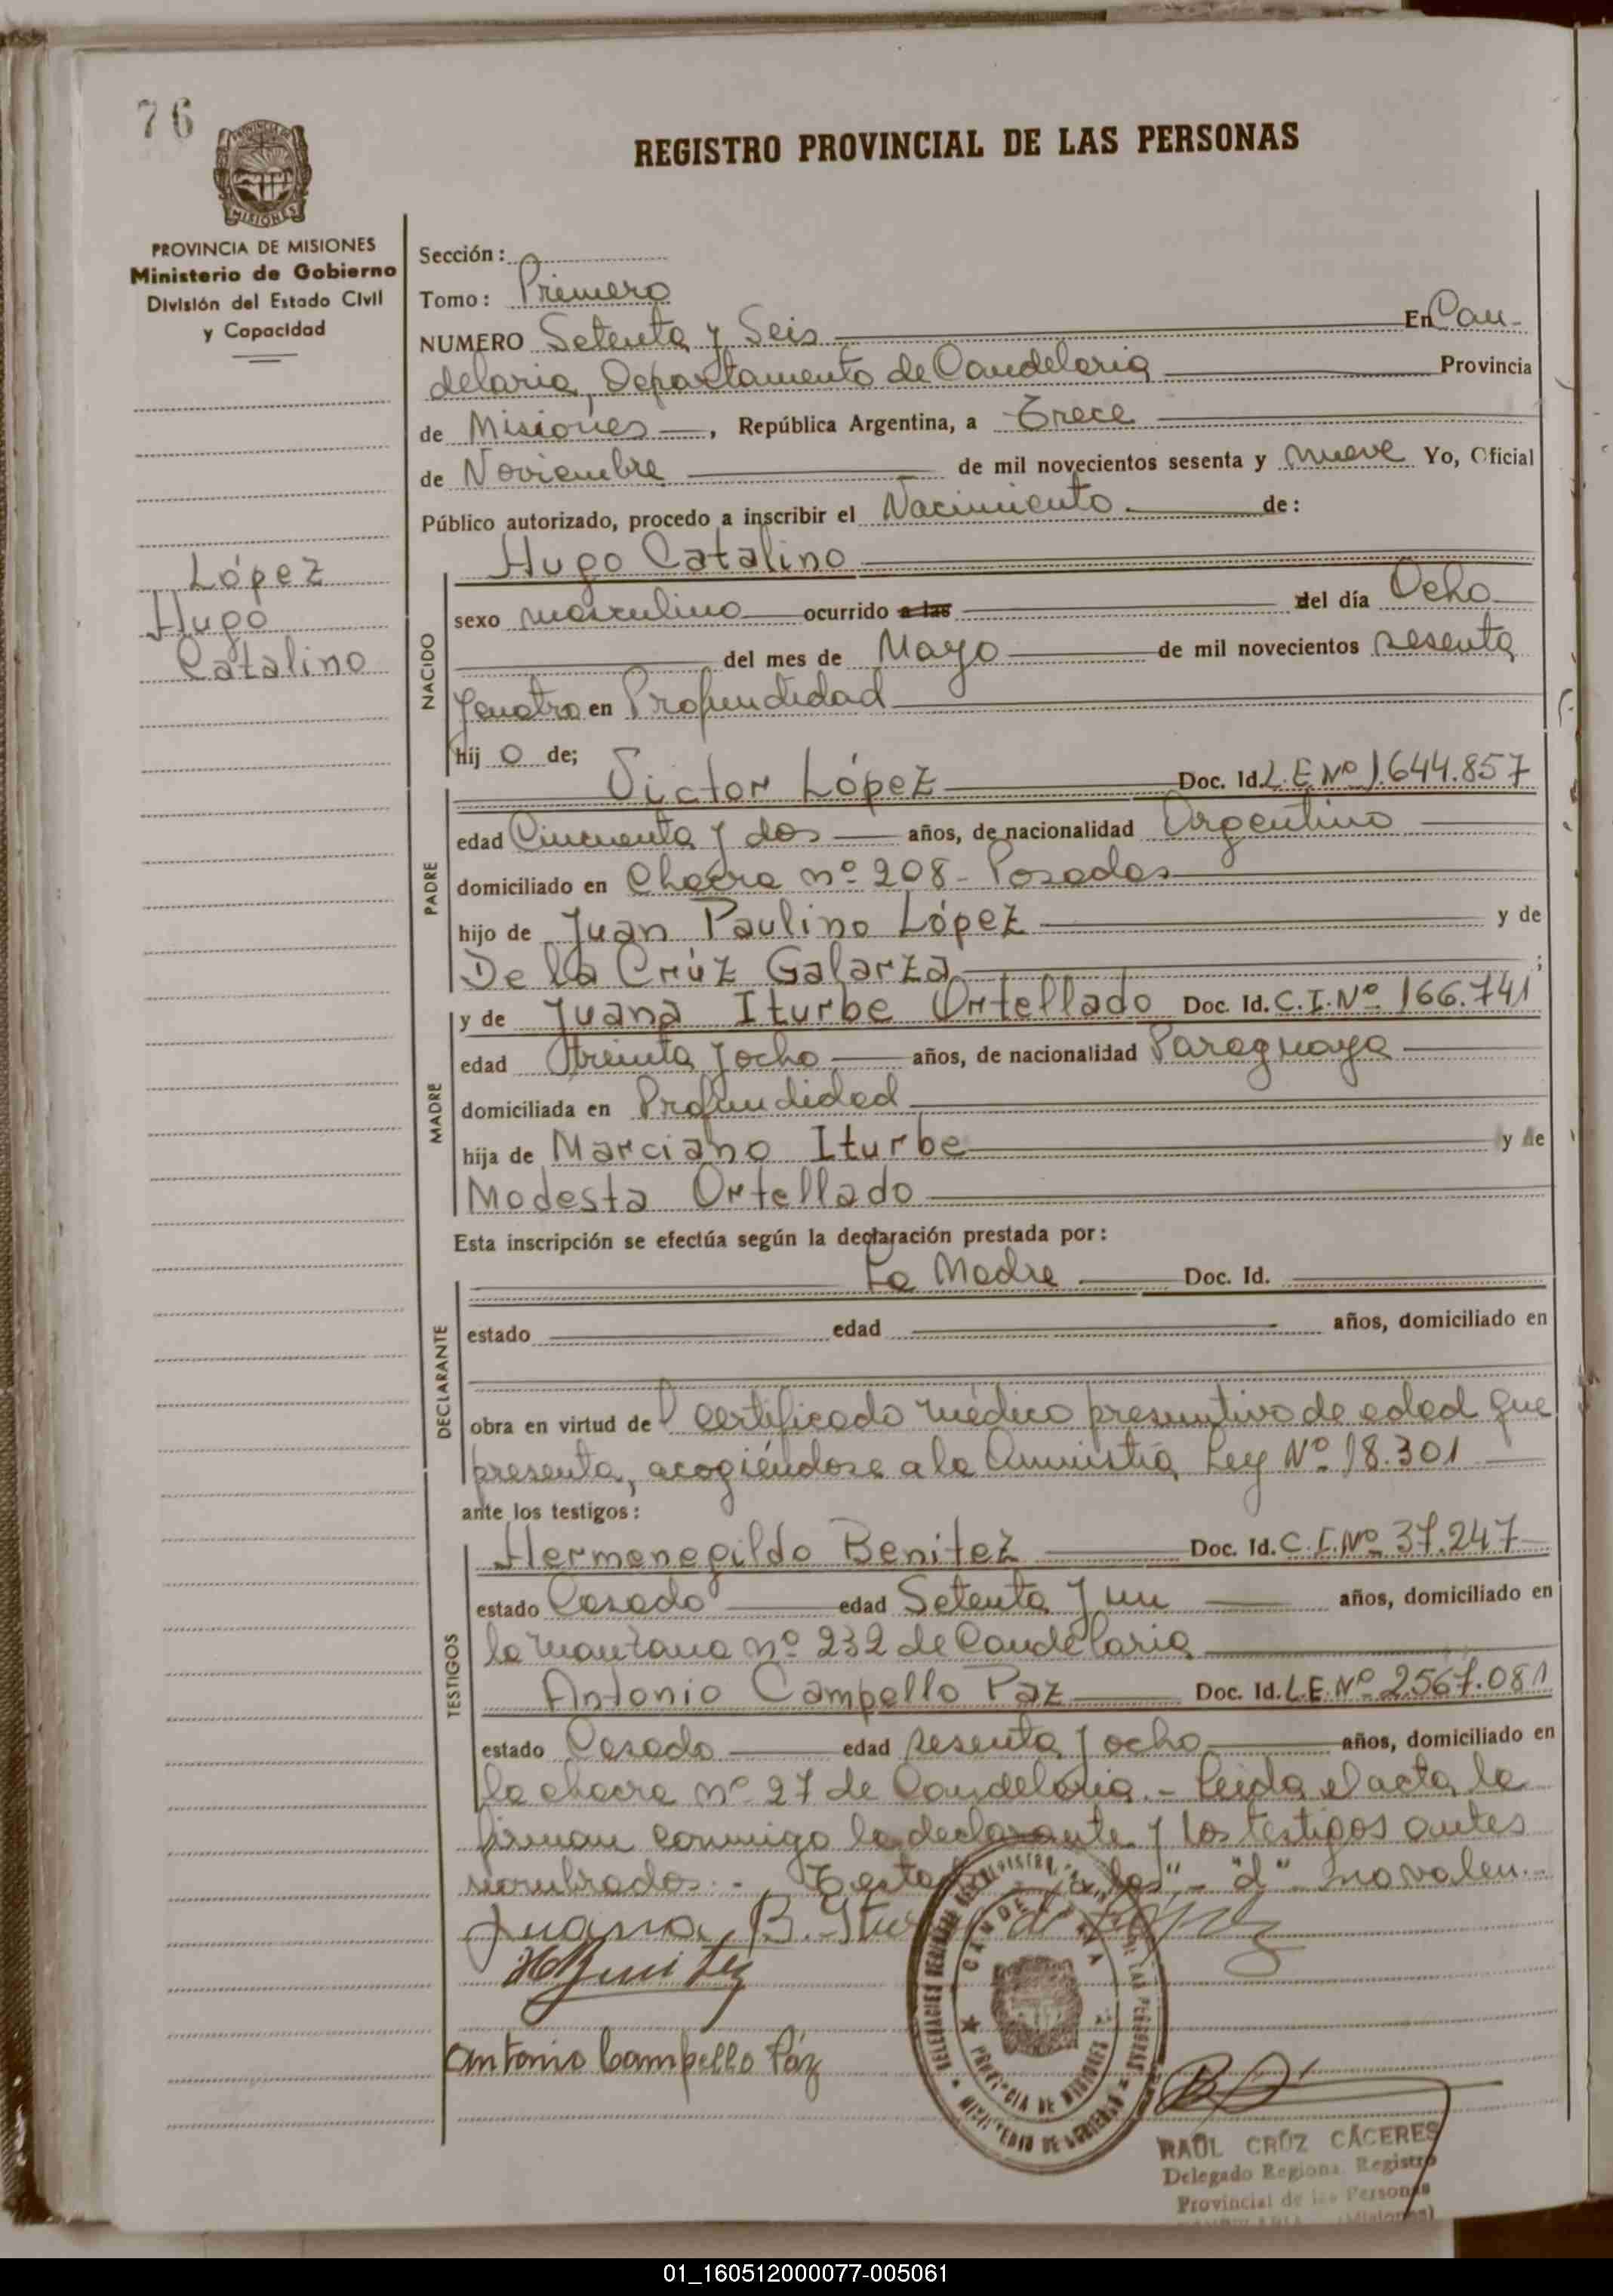 76
REGISTRO PROVINCIAL DE LAS PERSONAS
PROVINCIA DE MISIONES
Ministerio de Gobierno
División del Estado Civil
y Capacidad
López
Hugo
Catalino
Sección:
Tomo: Primero
NUMERO Setenta y Seis En Can-
delaria, Departamento de Candelaria Provincia
de Misiones, República Argentina, a Trece
de Noviembre de mil novecientos sesenta y nueve Yo, Oficial
Público autorizado, procedo a inscribir el Nacimiento de:
Hugo Catalino
NACIDO
sexo masculino ocurrido a las del día Ocho
del mes de Mayo de mil novecientos sesenta
y cuatro en Profundidad
hij o de;
PADRE
Victor López Doc. Id. L.E Nº 1.644.857
edad Cincuenta y dos años, de nacionalidad Argentino
domiciliado en Chacra nº 208 - Posadas
hijo de Juan Paulino López y de
De la Crúz Galarza ;
MADRE
y de Juana Iturbe Ortellado Doc. Id. C.I. Nº 166.741
edad treinta y ocho años, de nacionalidad Paraguaya
domiciliada en Profundidad
hija de Marciano Iturbe y de
Modesta Ortellado
Esta inscripción se efectúa según la declaración prestada por:
DECLARANTE
La Madre Doc. Id.
estado edad años, domiciliado en
obra en virtud de certificado médico presuntivo de edad que
presenta, acogiéndose a la Amnistía, Ley Nº 18.301
ante los testigos:
TESTIGOS
Hermenegildo Benitez Doc. Id. C.I. Nº 37.247
estado Casado edad Setenta y un años, domiciliado en
la manzana nº 232 de Candelaria
Antonio Campello Paz Doc. Id. L.E. Nº 2.567.081
estado Casado edad sesenta y ocho años, domiciliado en
la chacra nº 27 de Candelaria.- Leida el acta la
firman conmigo la declarante y los testigos antes
nombrados.- "d" no valen.-
Juana B. de López
Antonio Campello Páz
CANDELARIA
PROVINCIA DE MISIONES
MINISTERIO DE GOBIERNO
RAÚL CRÚZ CÁCERES
Delegado Regional Registro
Provincial de las Personas
(Misiones)
01_160512000077-005061